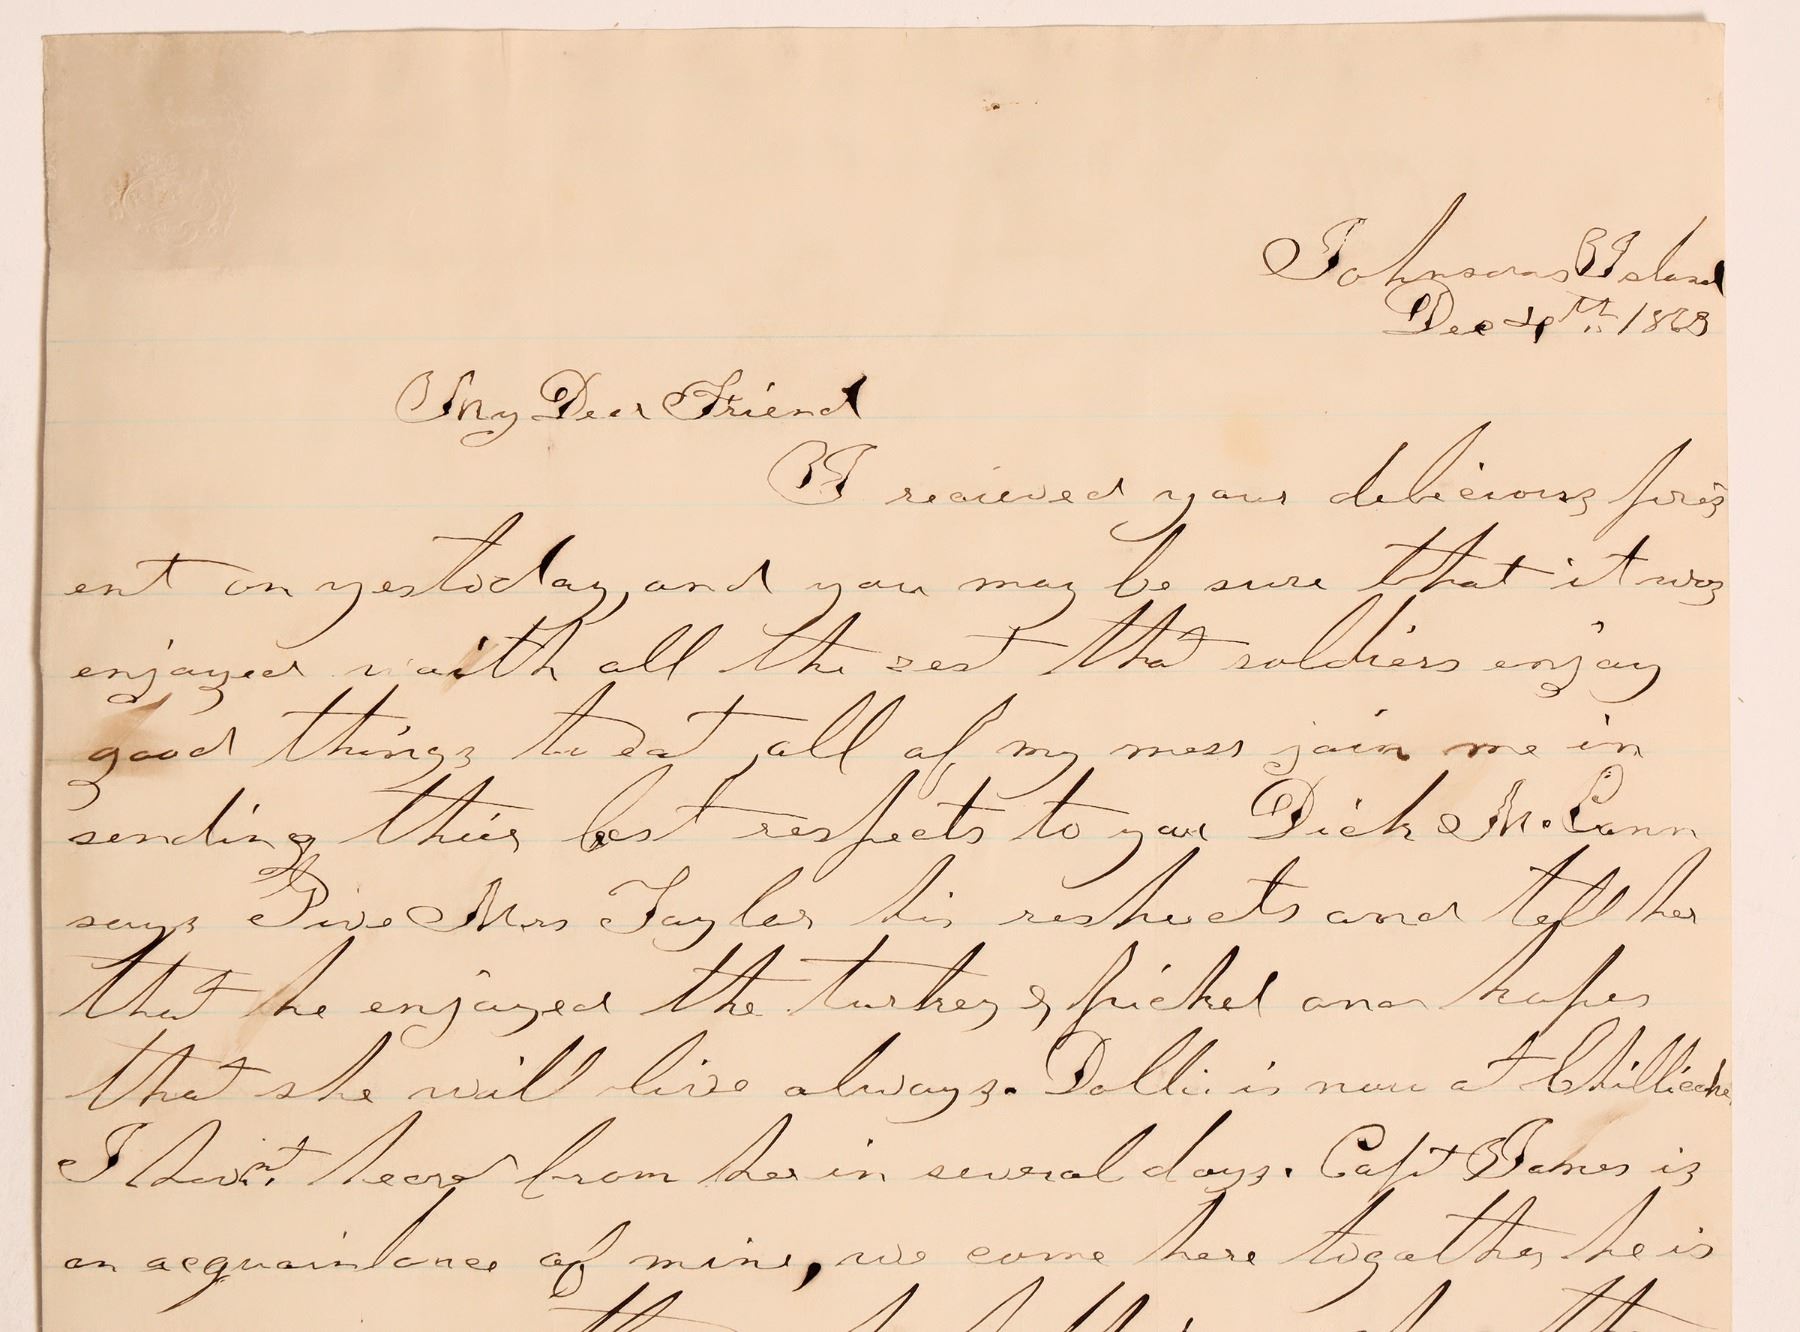 Johnsons Island
Dec 4th 1863
My Dear Friend
I recieved your delicious pres
ent on yestoday, and you may be sure that it was
enjoyed with all the zest that soldiers enjoy
good things to eat, all of my mess join me in
sending thier best respects to you Dick McCann
says Give Mrs Taylor his respects and tell her
that he enjoyed the turkey & pickel and hopes
that she will live always. Dolli is now at Chillicothe
I havnt heard from her in several days. Capt James is
an acquaintance of mine, we come here togather, he is